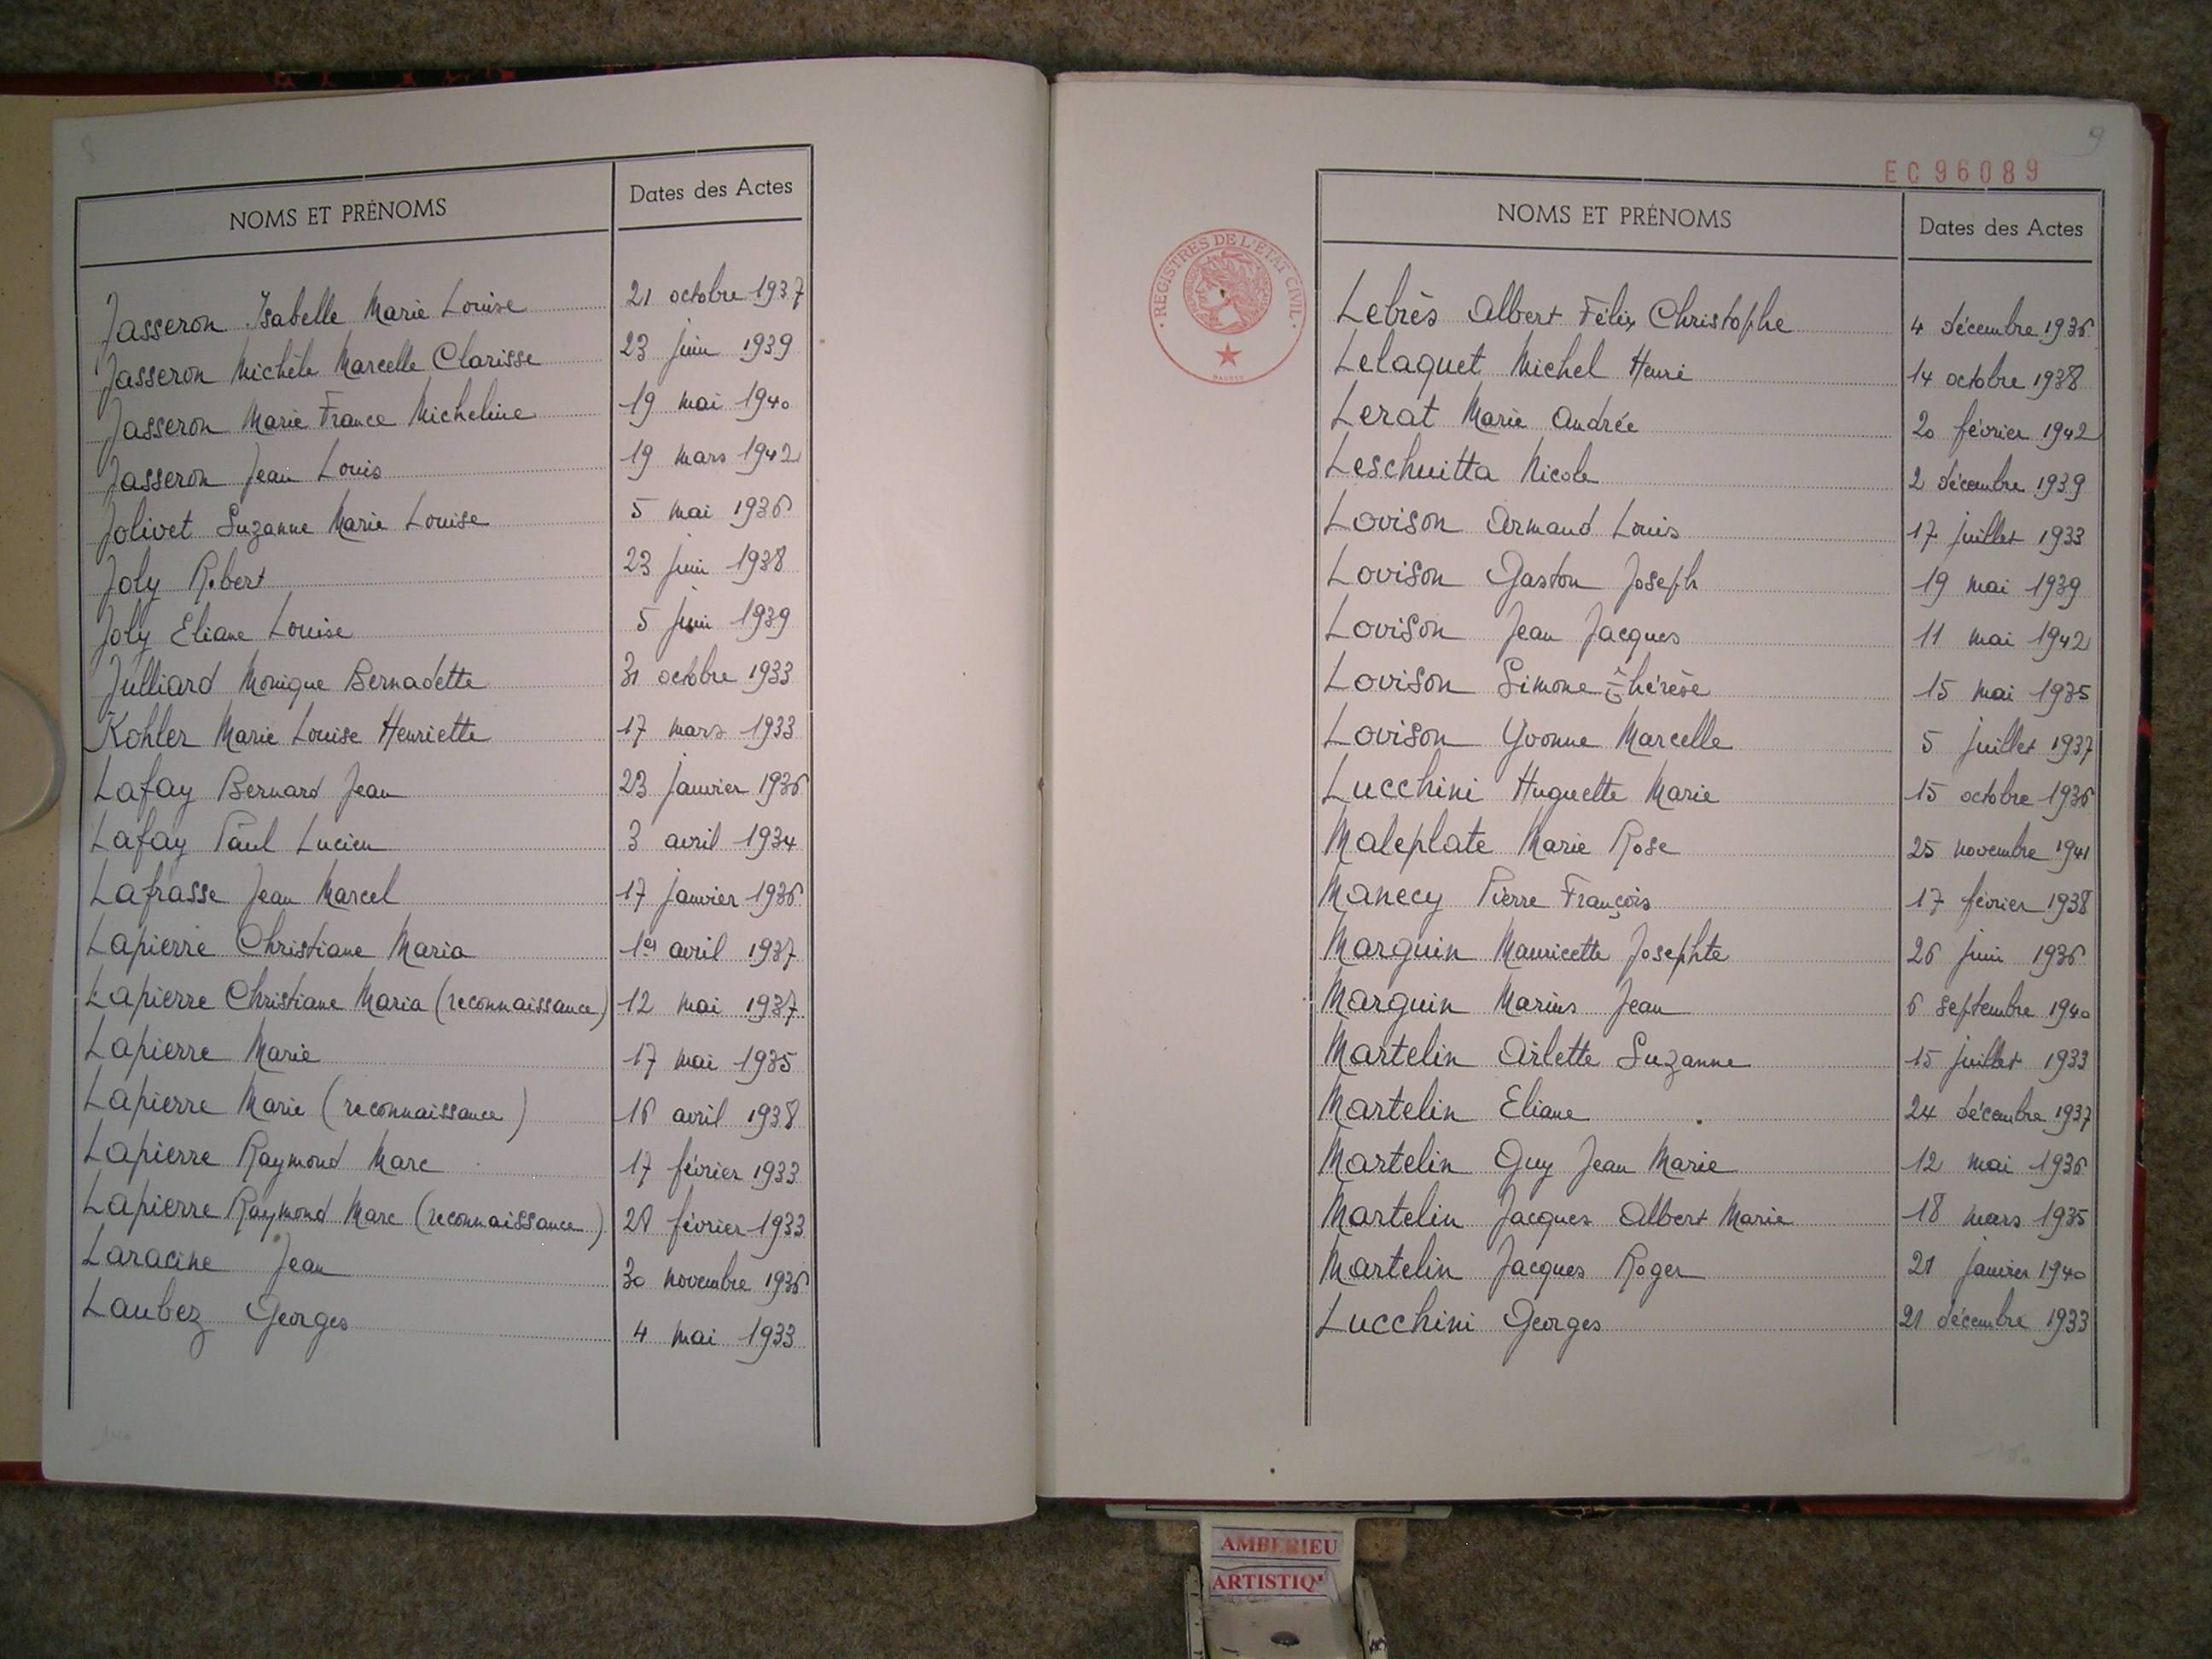 8
NOMS ET PRÉNOMS Dates des Actes
Jasseron Isabelle Marie Louise 21 octobre 1937
Jasseron Michèle Marcelle Clarisse 23 juin 1939
Jasseron Marie France Micheline 19 mai 1940
Jasseron Jean Louis 19 mars 1942
Jolivet Suzanne Marie Louise 5 mai 1936
Joly Robert 23 juin 1938
Joly Eliane Louise 5 juin 1939
Julliard Monique Bernadette 31 octobre 1933
Kohler Marie Louise Henriette 17 mars 1933
Lafay Bernard Jean 23 janvier 1936
Lafay Paul Lucien 3 avril 1934
Lafrasse Jean Marcel 17 janvier 1936
Lapierre Christiane Maria 1er avril 1937
Lapierre Christiane Maria (reconnaissance) 12 mai 1937
Lapierre Marie 17 mai 1935
Lapierre Marie (reconnaissance) 16 avril 1938
Lapierre Raymond Marc 17 février 1933
Lapierre Raymond Marc (reconnaissance) 28 février 1933
Laracine Jean 30 novembre 1936
Laubez Georges 4 mai 1933
9
EC96089
REGISTRES DE L'ÉTAT CIVIL
NOMS ET PRÉNOMS Dates des Actes
Lebrès Albert Félix Christophe 4 décembre 1936
Lelaquet Michel Henri 14 octobre 1938
Lerat Marie Andrée 20 février 1942
Leschuitta Nicole 2 décembre 1939
Lovison Armand Louis 17 juillet 1933
Lovison Gaston Joseph 19 mai 1939
Lovison Jean Jacques 11 mai 1942
Lovison Simone Thérèse 15 mai 1935
Lovison Yvonne Marcelle 5 juillet 1937
Lucchini Huguette Marie 15 octobre 1936
Maleplate Marie Rose 25 novembre 1941
Manecy Pierre François 17 février 1938
Marguin Mauricette Josephte 26 juin 1936
Marguin Marius Jean 6 septembre 1940
Martelin Arlette Suzanne 15 juillet 1933
Martelin Eliane 24 décembre 1937
Martelin Guy Jean Marie 12 mai 1936
Martelin Jacques Albert Marie 18 mars 1935
Martelin Jacques Roger 21 janvier 1940
Lucchini Georges 21 décembre 1933
AMBERIEU
ARTISTIQ*